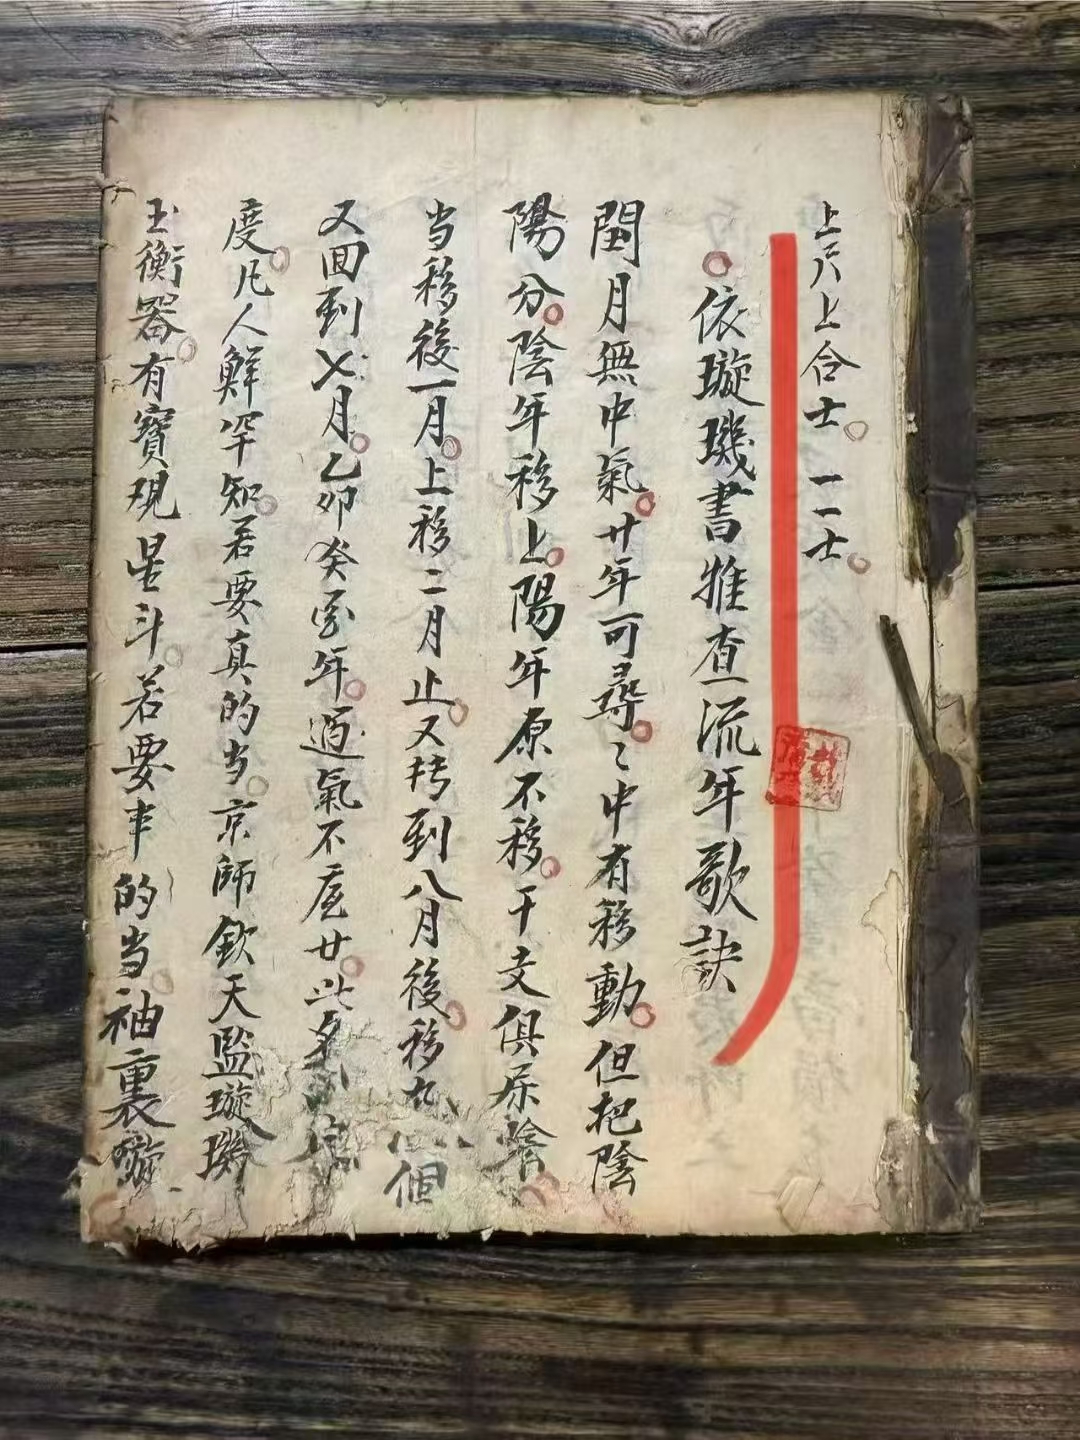 上尺上合士。一一士。
依璇璣書推查流年歌訣
閏月無中氣。廿年可尋。〻中有移動。但把陰
陽分。陰年移上。陽年原不移。干支俱
当移後一月。上移二月止。又到八月後。移個
又回到七月。乙卯癸年。氣不廿。此
度。凡人鮮罕知。若要真的当。京師欽天監璇璣
玉衡器。有寶現星斗。若要事的当。袖裏